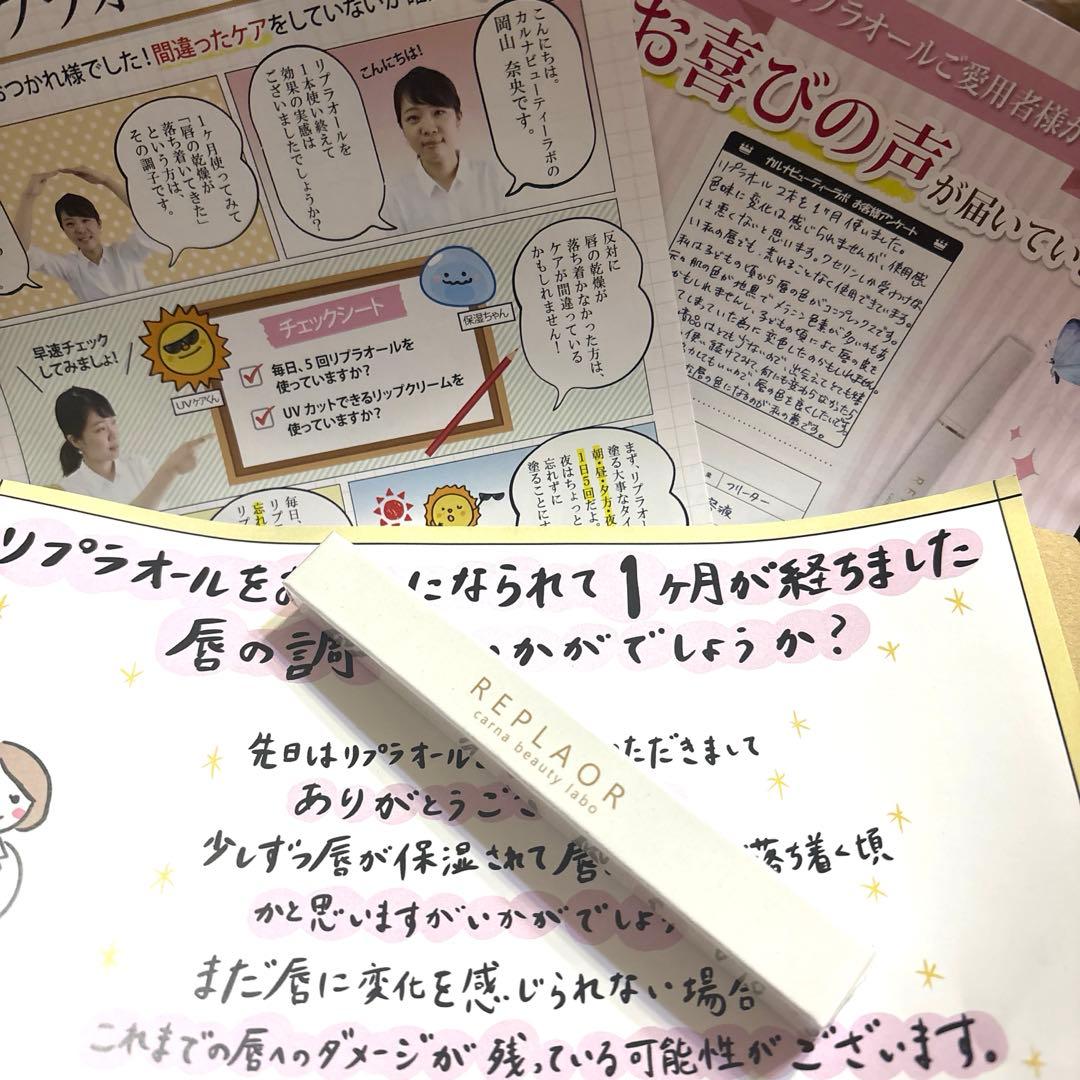 おつかれ様でした！間違ったケアをしていないか
1ヶ月使ってみて
「唇の乾燥が
落ち着いてきた」
という方は、
その調子です。
リプラオールを
1本使い終えて
効果の実感は
ございましたでしょうか？
こんにちは！
こんにちは。
カルナビューティーラボの
岡山 奈央です。
反対に
唇の乾燥が
落ち着かなかった方は、
ケアが間違っている
かもしれません！
早速チェック
してみましょ！
UVケアくん
チェックシート
保湿ちゃん
毎日、5回リプラオールを
使っていますか？
UVカットできるリップクリームを
使っていますか？
まず、リプラオー
塗る大事なタイ
朝・昼・夕方・夜
1日5回だよ。
夜はちょっと
忘れずに
塗ることに
毎日、
リプ
忘れ
リプラオールご愛用者様か
お喜びの声が届いてい
カルナビューティーラボ お客様アンケート
リプラオール2本を1ヶ月使いました。
色味に変化は感じられませんが、使用感
は悪くないと思います。ワセリンしか受けつけな
い私の唇でも、荒れることなく使用できています。
私は子どもの頃から唇の色がコンプレックスです。
フリーター
リプラオールをお
になられて1ヶ月が経ちました
唇の調
いかがでしょうか？
先日はリプラオール
いただきまして
ありがとうござ
少しずつ唇が保湿されて唇
落ち着く頃
かと思いますがいかがでしょ
まだ唇に変化を感じられない場合
これまでの唇へのダメージが残っている可能性がございます。
REPLAOR
carna beauty labo